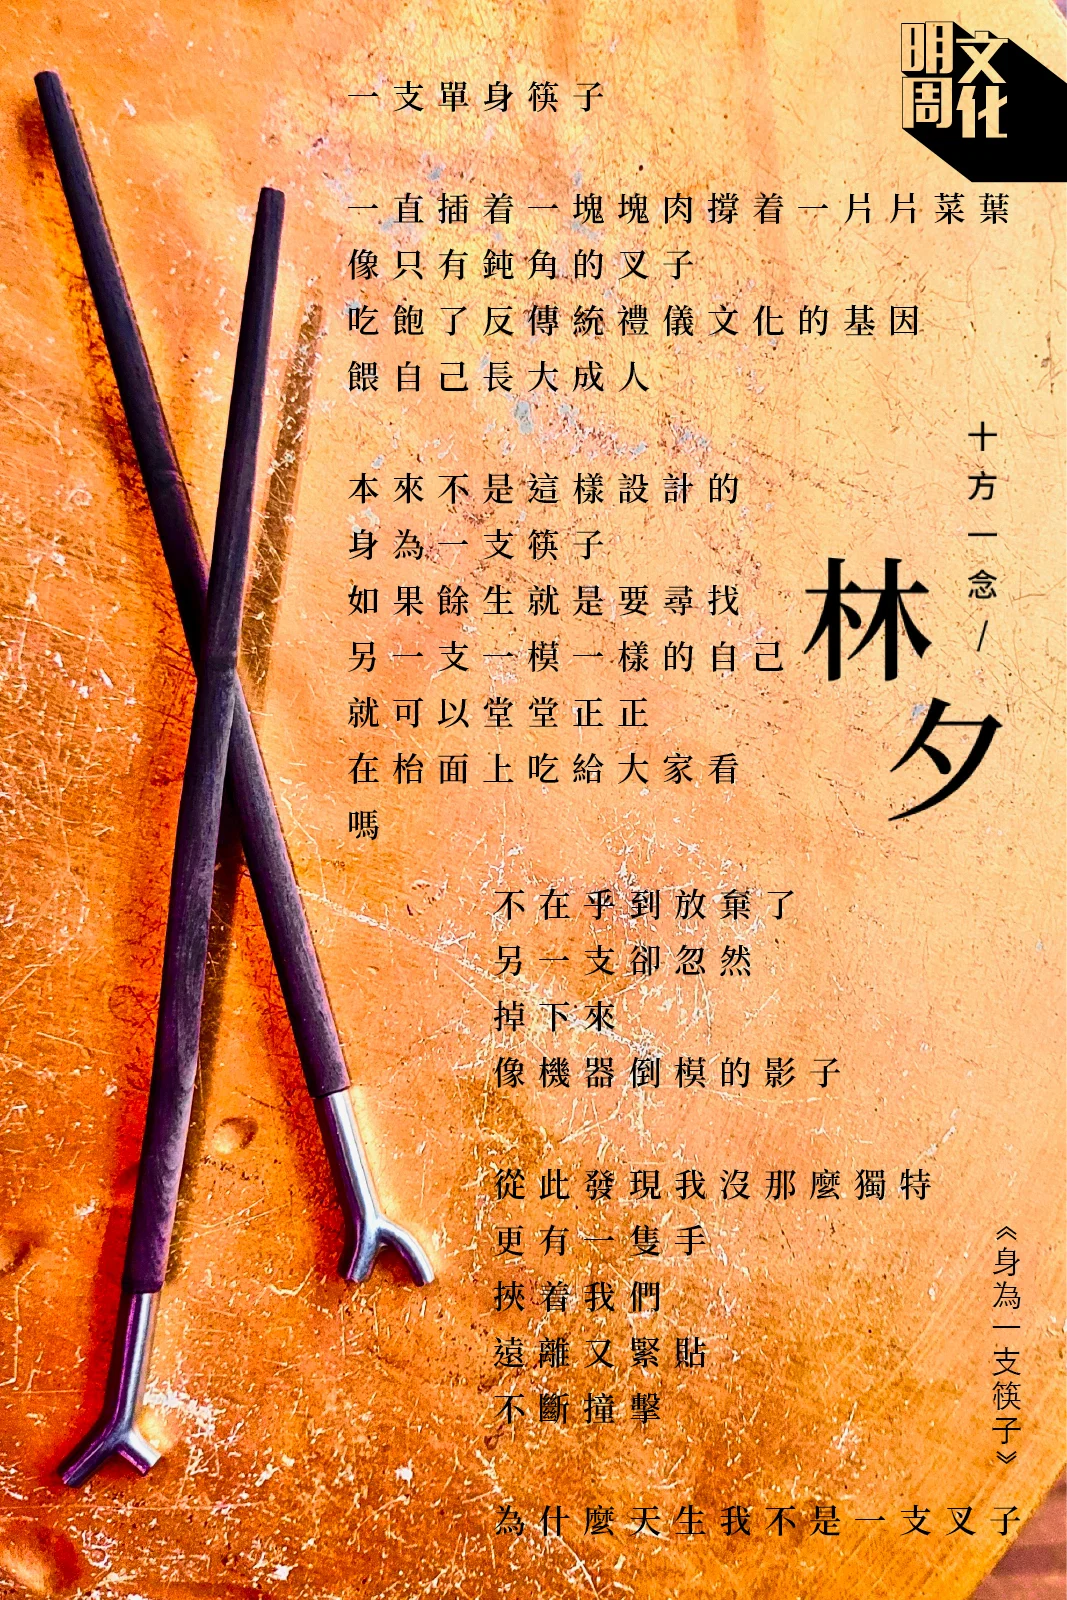 明周
文化
一支單身筷子
一直插着一塊塊肉撐着一片片菜葉
像只有鈍角的叉子
吃飽了反傳統禮儀文化的基因
餵自己長大成人
本來不是這樣設計的
身為一支筷子
如果餘生就是要尋找
另一支一模一樣的自己
就可以堂堂正正
在枱面上吃給大家看
嗎
十方一念/
林夕
不在乎到放棄了
另一支卻忽然
掉下來
像機器倒模的影子
從此發現我沒那麼獨特
更有一隻手
挾着我們
遠離又緊貼
不斷撞擊
為什麼天生我不是一支叉子
《身為一支筷子》